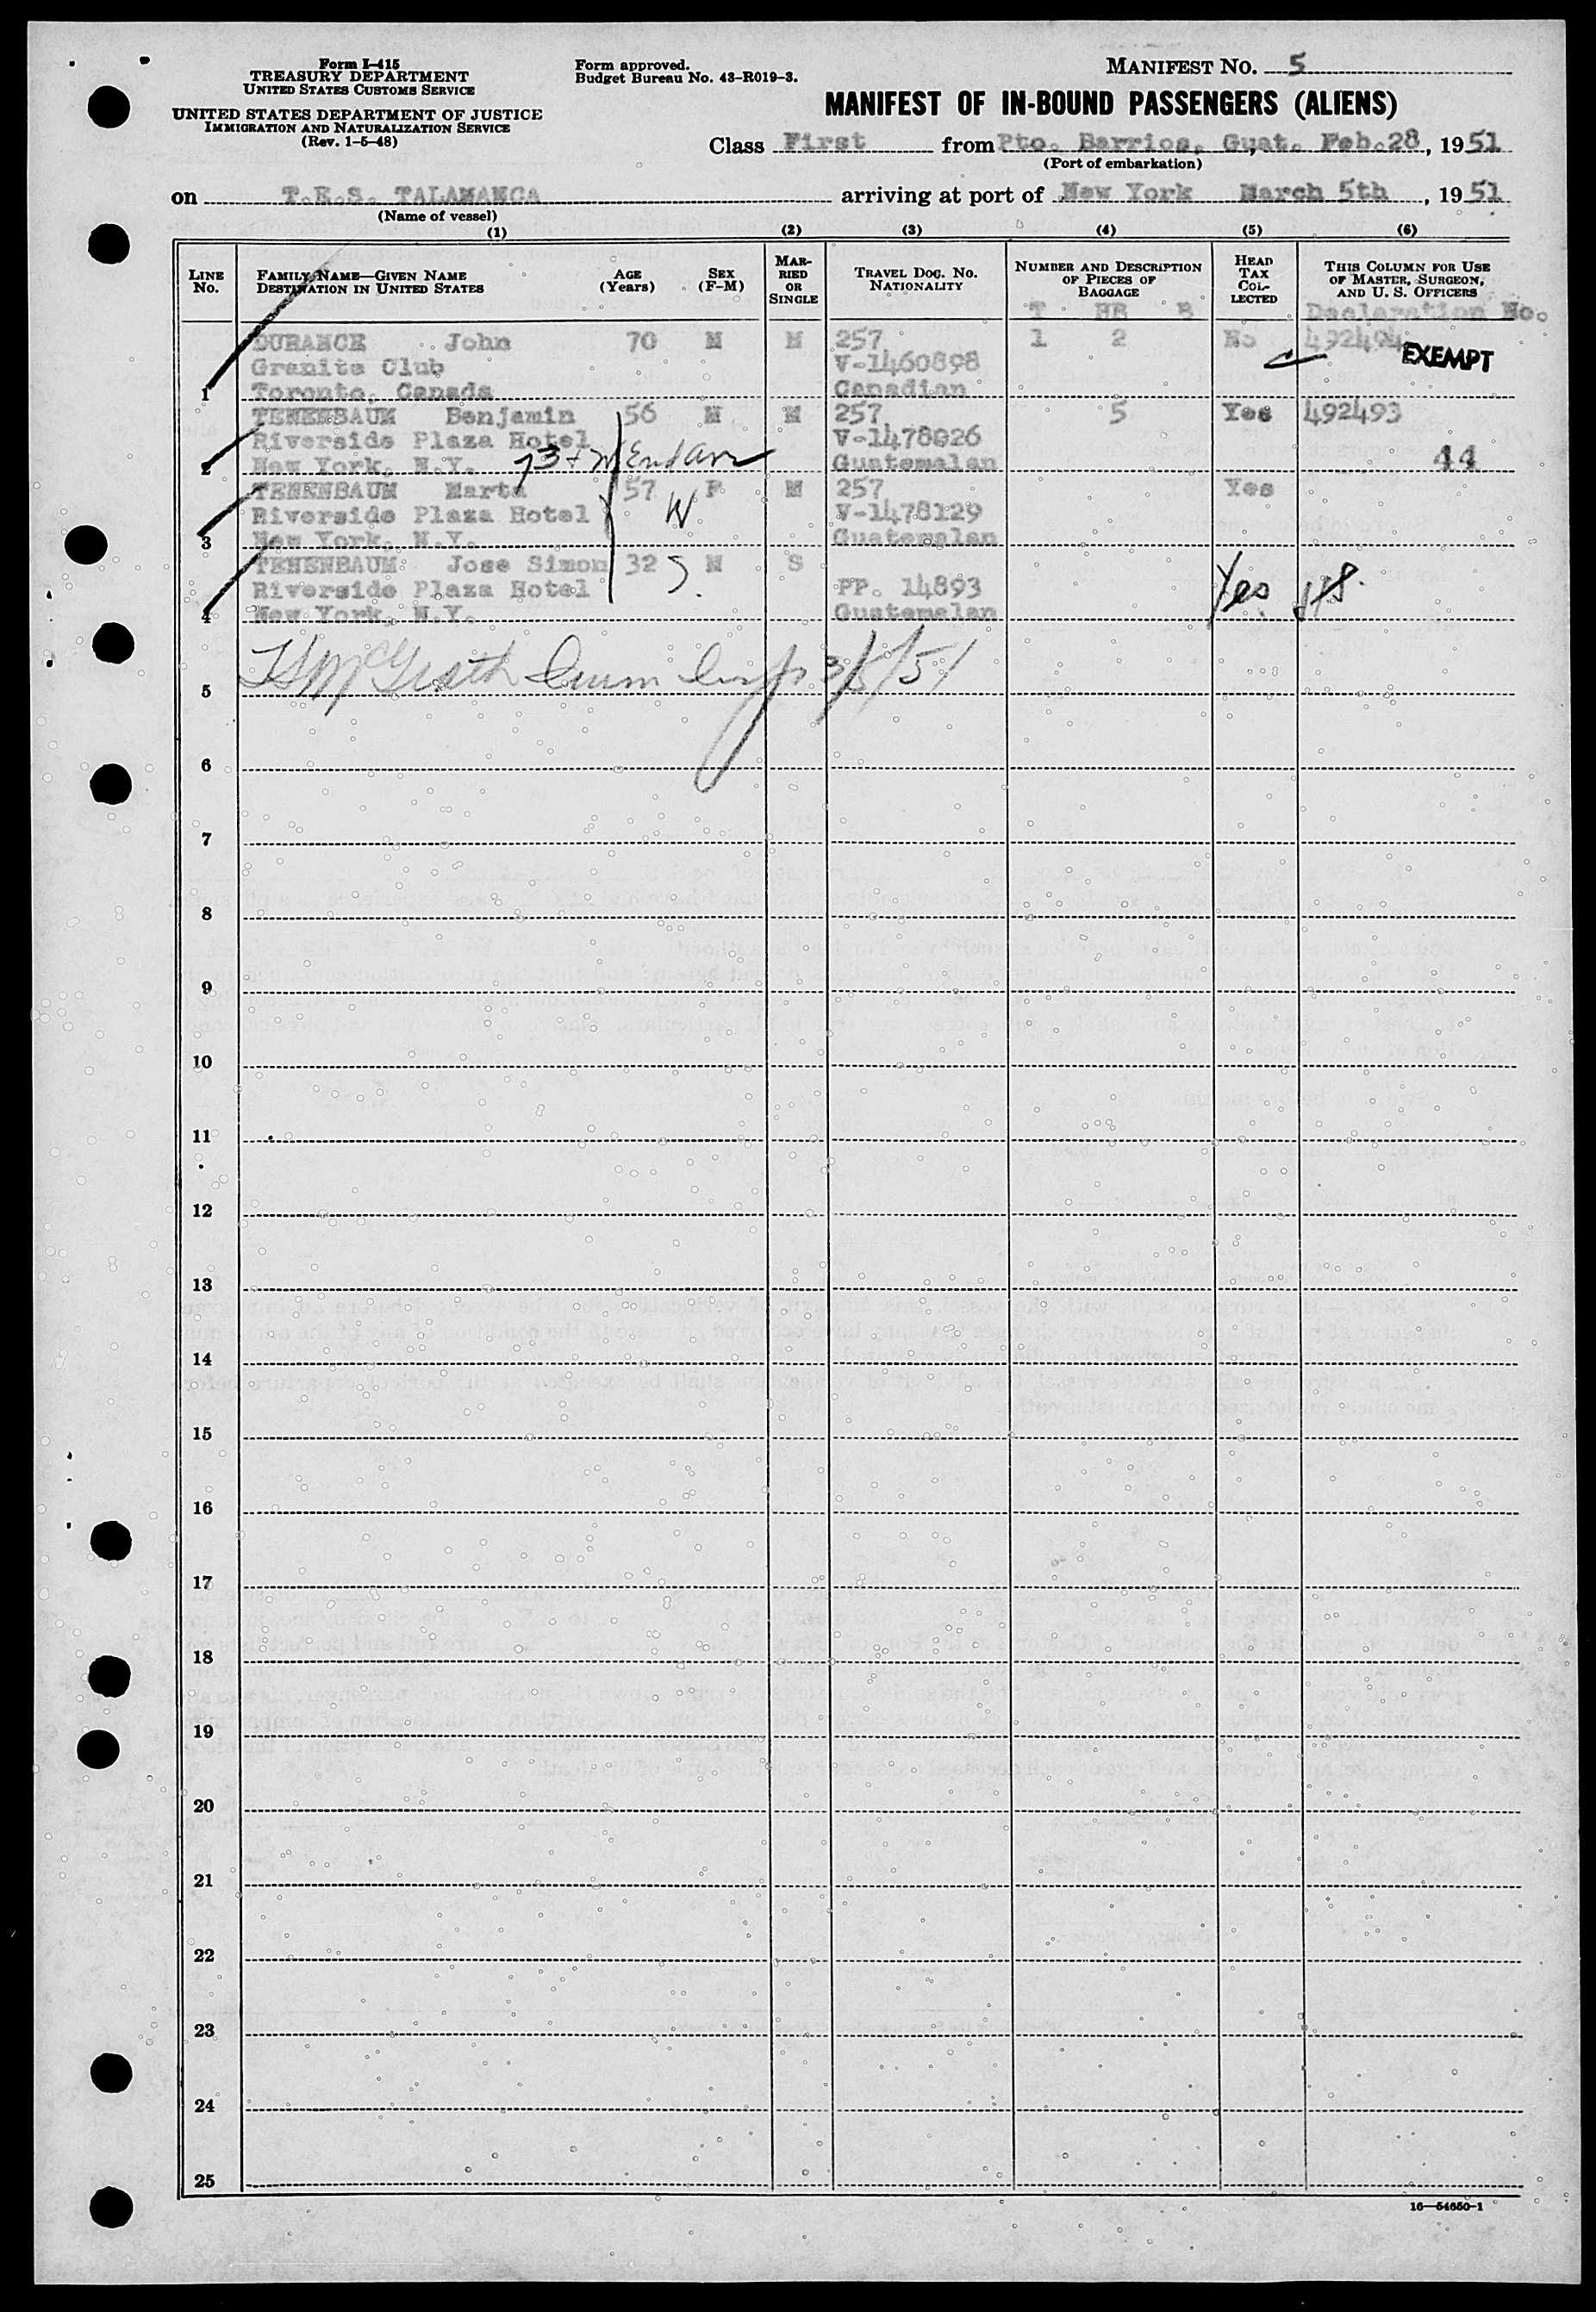 Form I-415
TREASURY DEPARTMENT
UNITED STATES CUSTOMS SERVICE
UNITED STATES DEPARTMENT OF JUSTICE
IMMIGRATION AND NATURALIZATION SERVICE
(Rev. 1-5-48)
Form approved.
Budget Bureau No. 43-R019-3.
MANIFEST NO. 5
MANIFEST OF IN-BOUND PASSENGERS (ALIENS)
Class First from Pto. Barrios, Guat. Feb. 28, 1951
(Port of embarkation)
on T.E.S. TALAMANCA arriving at port of New York March 5th, 1951
(Name of vessel)
(1) (2) (3) (4) (5) (6)
LINE No.
FAMILY NAME—GIVEN NAME
DESTINATION IN UNITED STATES
AGE (Years)
SEX (F-M)
MARRIED OR SINGLE
TRAVEL DOC. NO.
NATIONALITY
NUMBER AND DESCRIPTION OF PIECES OF BAGGAGE
T HB B
HEAD TAX COLLECTED
THIS COLUMN FOR USE OF MASTER, SURGEON, AND U. S. OFFICERS
Declaration No.
DURANCE John 70 M M 257 1 2 No 492494 EXEMPT
Granite Club V-1460898
1 Toronto, Canada Canadian
TENENBAUM Benjamin 56 M M 257 5 Yes 492493
Riverside Plaza Hotel V-1478026
2 New York, N.Y. 73 + W End Ave Guatemalan 44
TENENBAUM Marta 57 F M 257 Yes
Riverside Plaza Hotel W V-1478129
3 New York, N.Y. Guatemalan
TENENBAUM Jose Simon 32 S M S
Riverside Plaza Hotel PP. 14893 Yes
4 New York, N.Y. Guatemalan
5 McGrath 3/5/51
6
7
8
9
10
11
12
13
14
15
16
17
18
19
20
21
22
23
24
25
16—54650-1